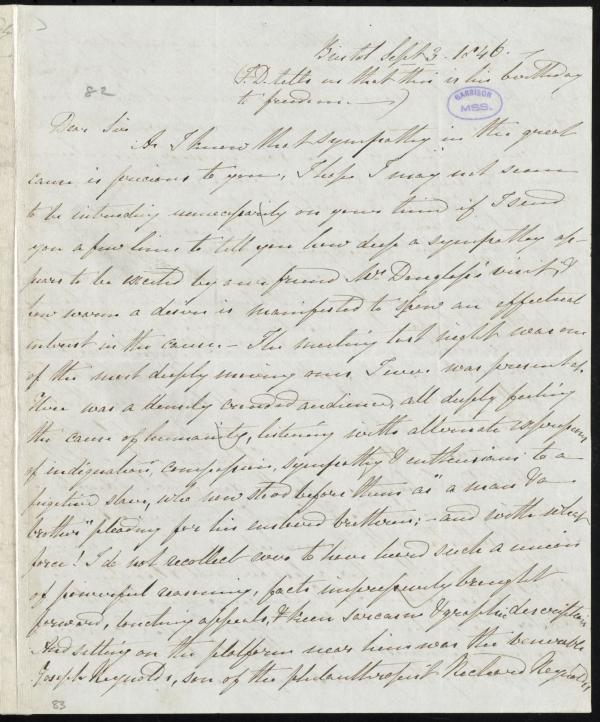 82
Bristol Sept 3. 1846.
(F. D. tells us that this is his birthday
to freedom. —)
GARRISON
MSS.
Dear Sir
As I know that sympathy in the great
cause is precious to you, I hope I may not seem
to be intruding unnecessarily on your time if I send
you a few lines to tell you how deep a sympathy ap-
pears to be excited by our friend Mr Douglass's visit, &
how warm a desire is manifested to shew an effectual
interest in the cause. — The meeting last night was one
of the most deeply moving ones I ever was present at.
There was a densely crowded audience, all deeply feeling
the cause of humanity, listening with alternate expressions
of indignation, compassion, sympathy & enthusiasm to a
fugitive slave, who now stood before them as "a man & a
brother" pleading for his enslaved brethren; — and with what
force! I do not recollect ever to have heard such a union
of powerful reasoning, facts impressively brought
forward, touching appeals, & keen sarcasm & graphic description.
And sitting on the platform near him was the venerable
Joseph Reynolds, son of the philanthropist Richard Reynolds
83